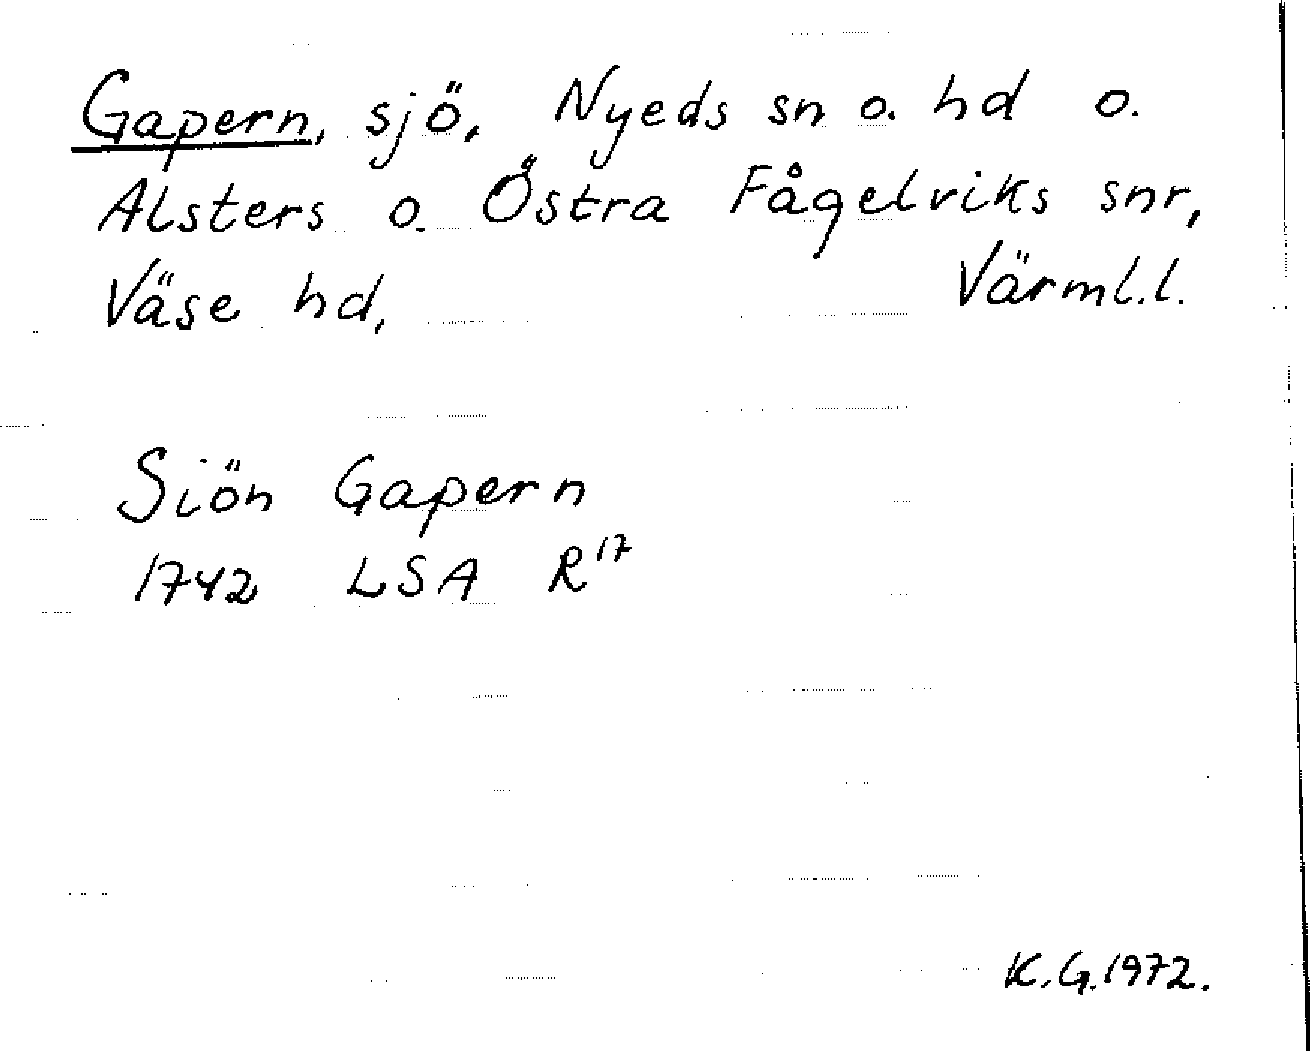 Gapern, sjö, Nyeds sn o. hd o.
Alsters o. Östra Fågelviks snr,
Väse hd, Värml.l.
Siön Gapern
1742 LSA R17
K.G.1972.